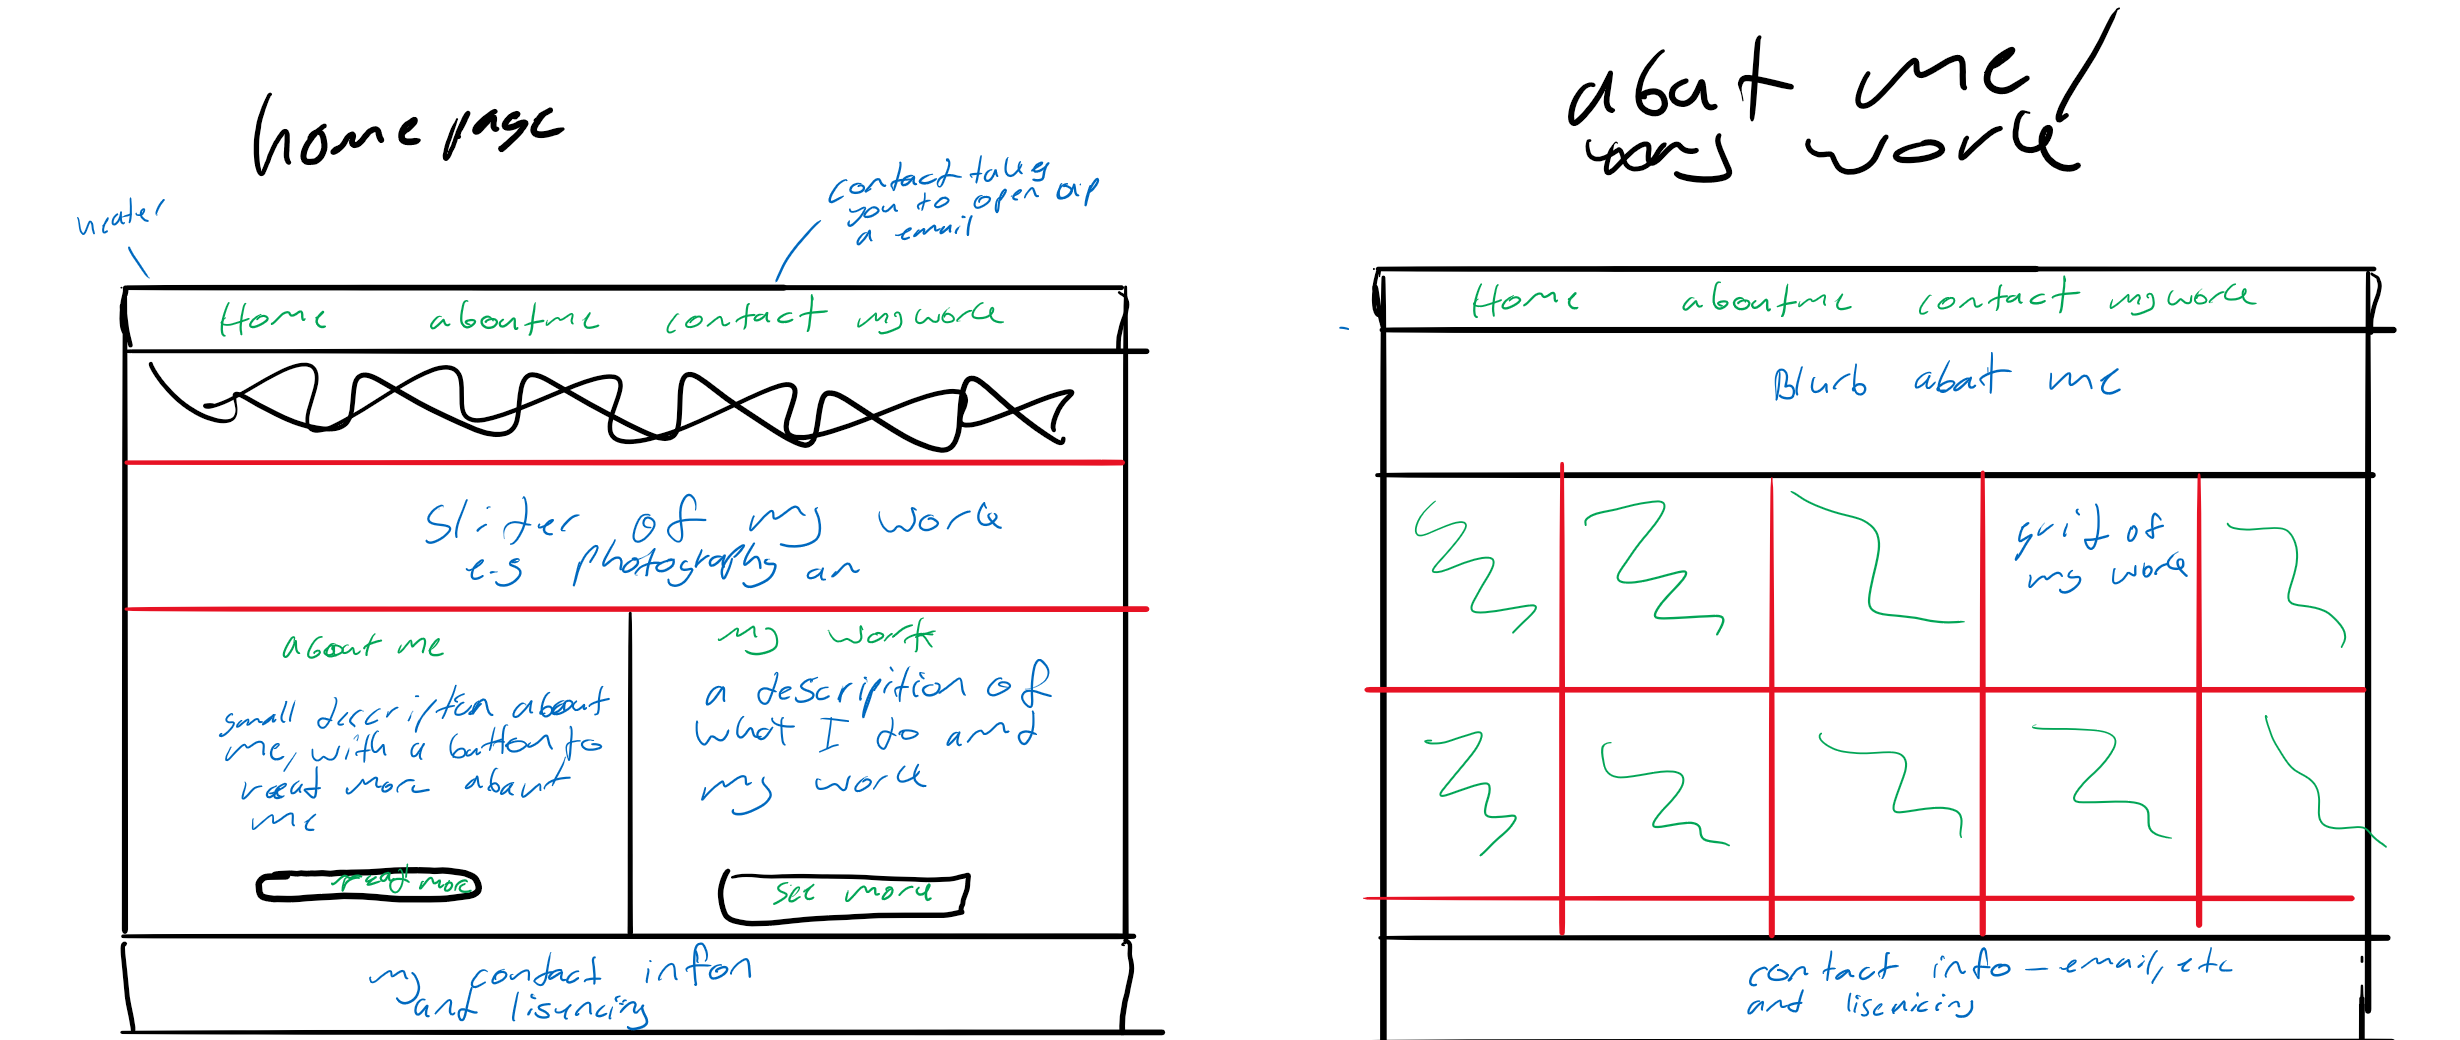 homepage
heater
contact takes
you to open up
a email
Home aboutme contact my work
Slider of my work
e.g photography an
about me
small description about
me, with a button to
read more about
me
read more
my work
a descripition of
what I do and
my work
see more
my contact infon
and lisencing
about me /
my work
Home aboutme contact my work
Blurb about me
grid of
my work
contact info - email, etc
and lisenicing